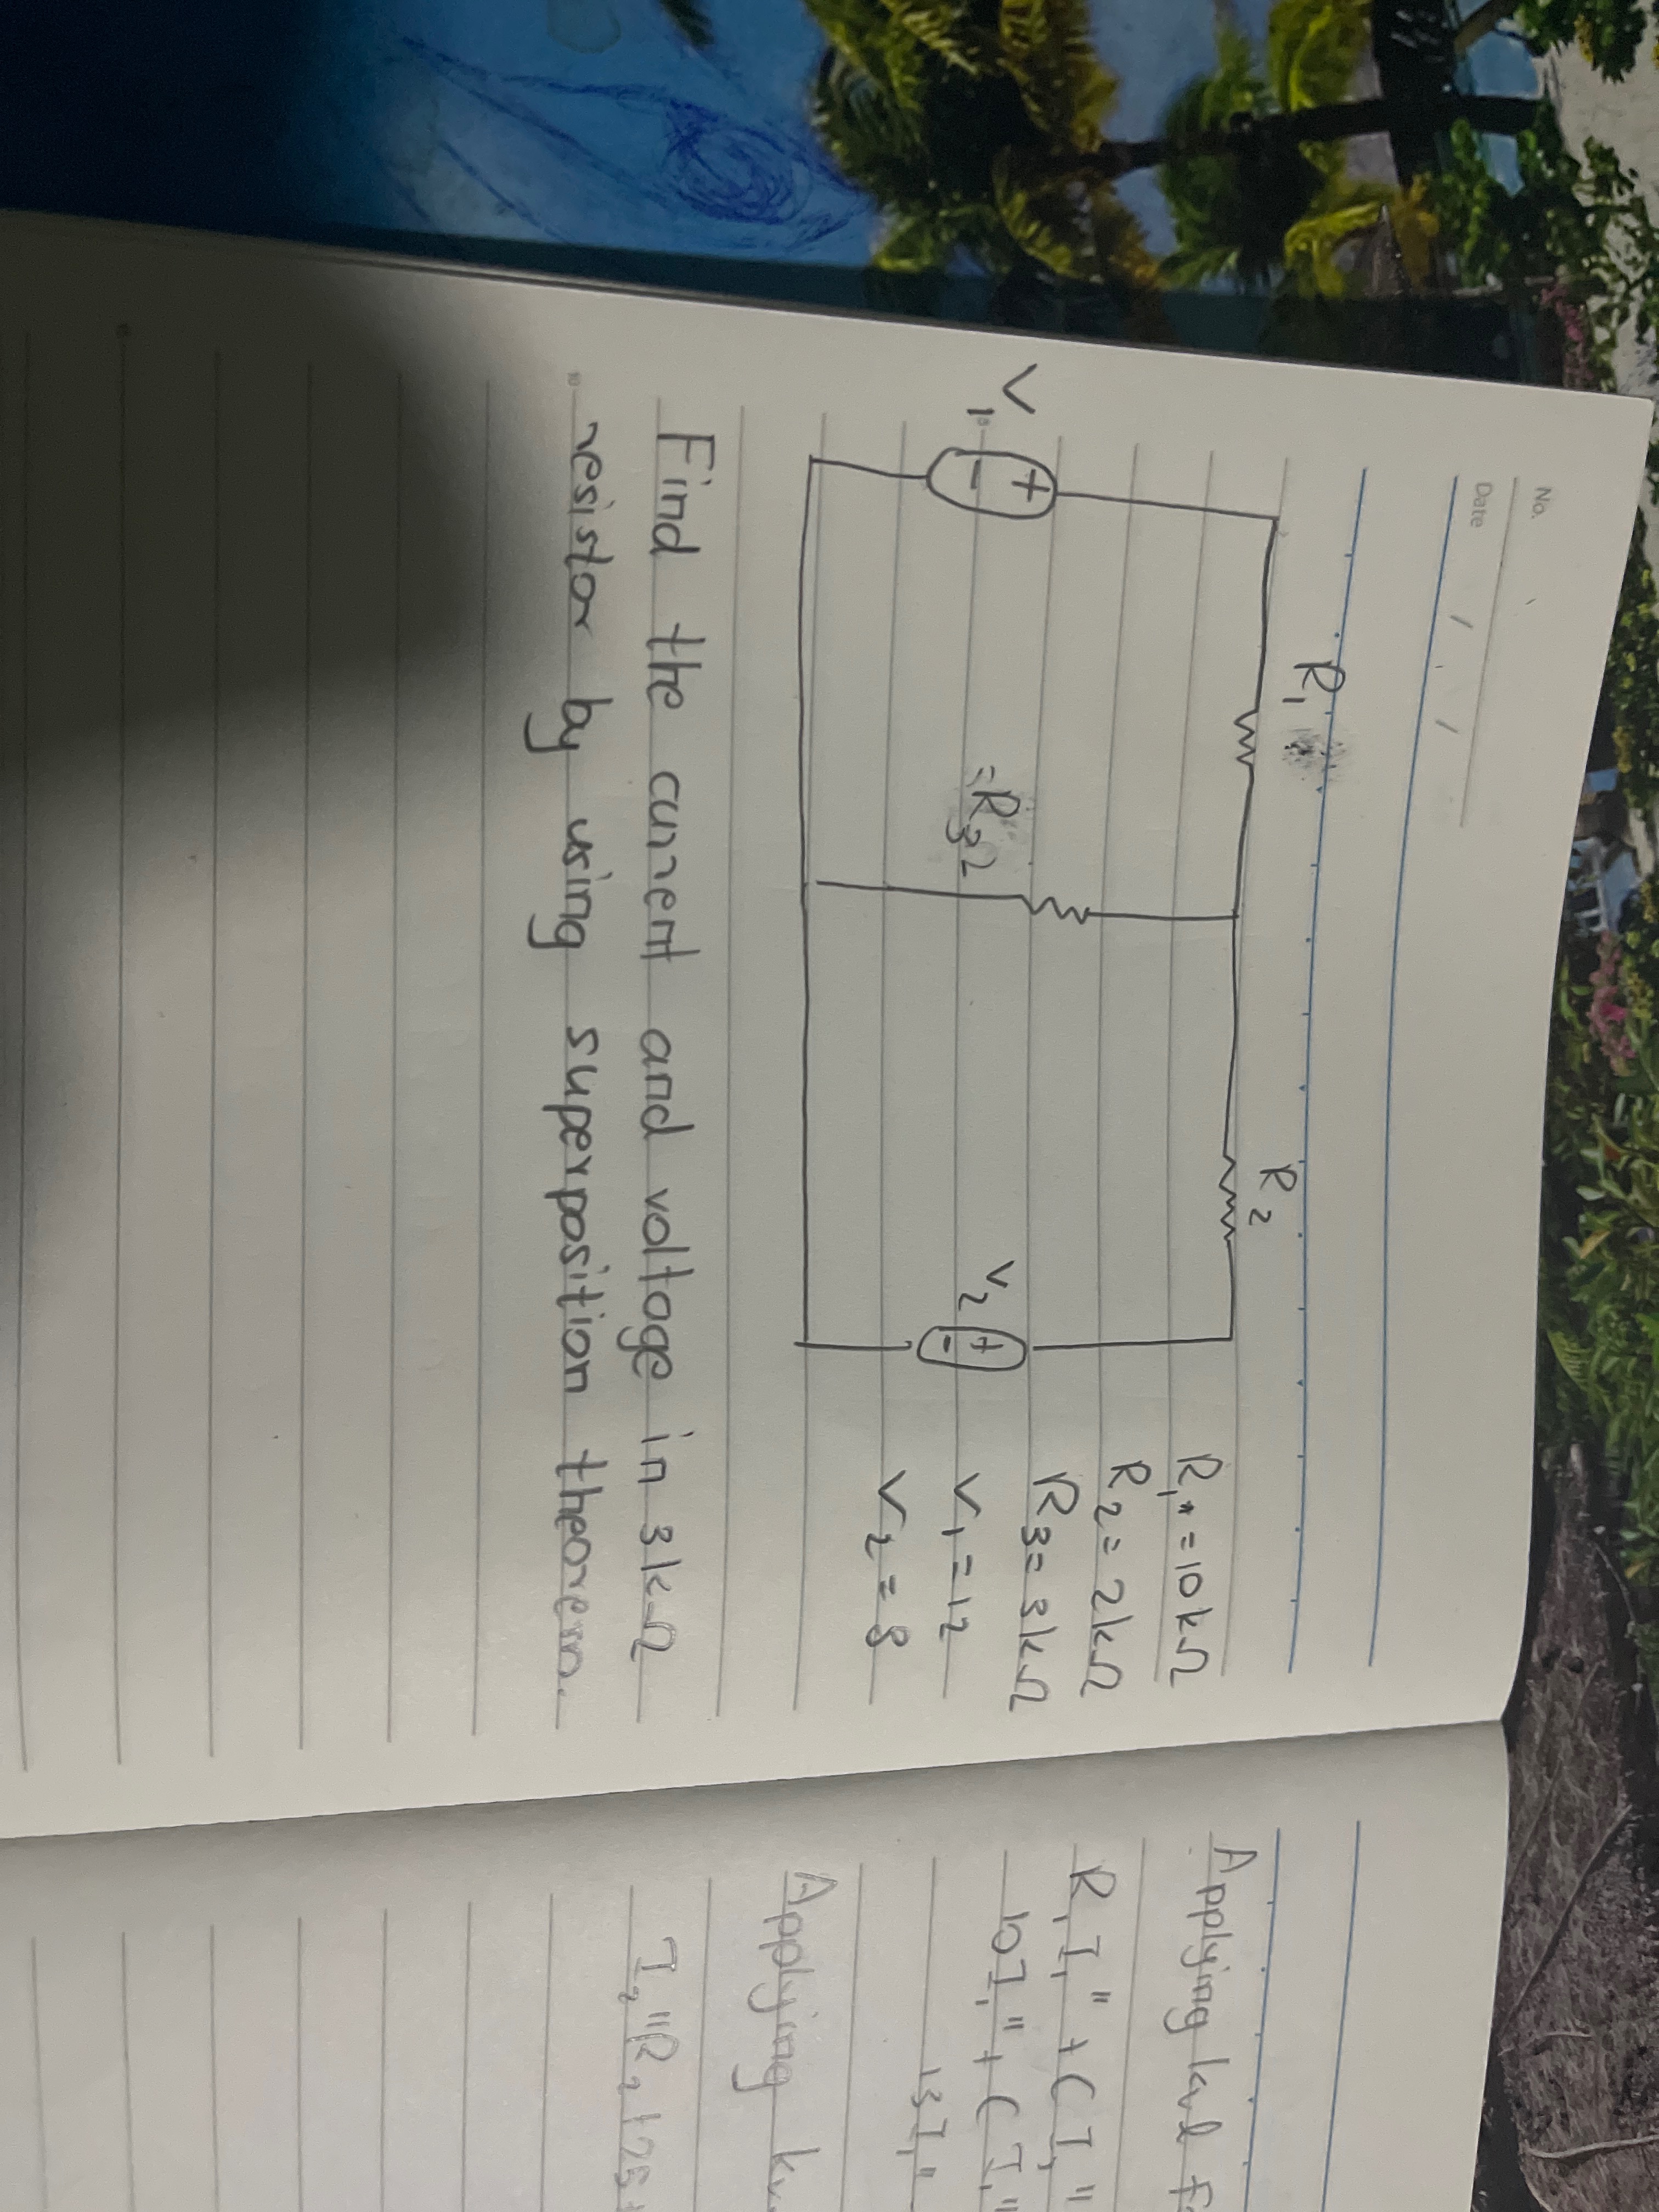 No.
Date / /
R1
R2
V1
+
-
R3
V2
+
-
R1 = 10kΩ
R2 = 2kΩ
R3 = 3kΩ
V1 = 12
V2 = 8
Find the current and voltage in 3kΩ
resistor by using superposition theorem.
Applying kvl
R1I1" + (I1"
10I1" + (I1"
13I1"
Applying
I2"R2